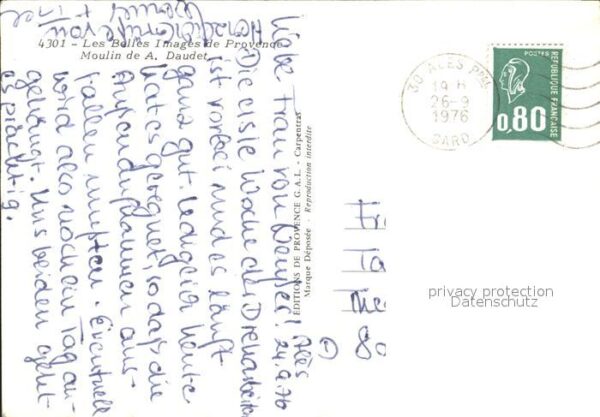 4301 - Les Belles Images de Provence
Moulin de A. Daudet
Alès
24.9.76
Liebe Frau von
Die erste Woche der Dreharbeiten
ist vorbei und es läuft
ganz gut. Lediglich heute
hat es geregnet, so daß die
Außenaufnahmen aus-
fallen mußten. Eventuell
wird also noch ein Tag an-
gehängt. Uns beiden geht
es prächtig.
EDITIONS DE PROVENCE G.A.L. - Carpentras
Marque Déposée - Reproduction interdite
30 ALES PPAL
19 H
26-9
1976
GARD
REPUBLIQUE FRANÇAISE
0,80
Fr
Ta
The
80
privacy protection
Datenschutz